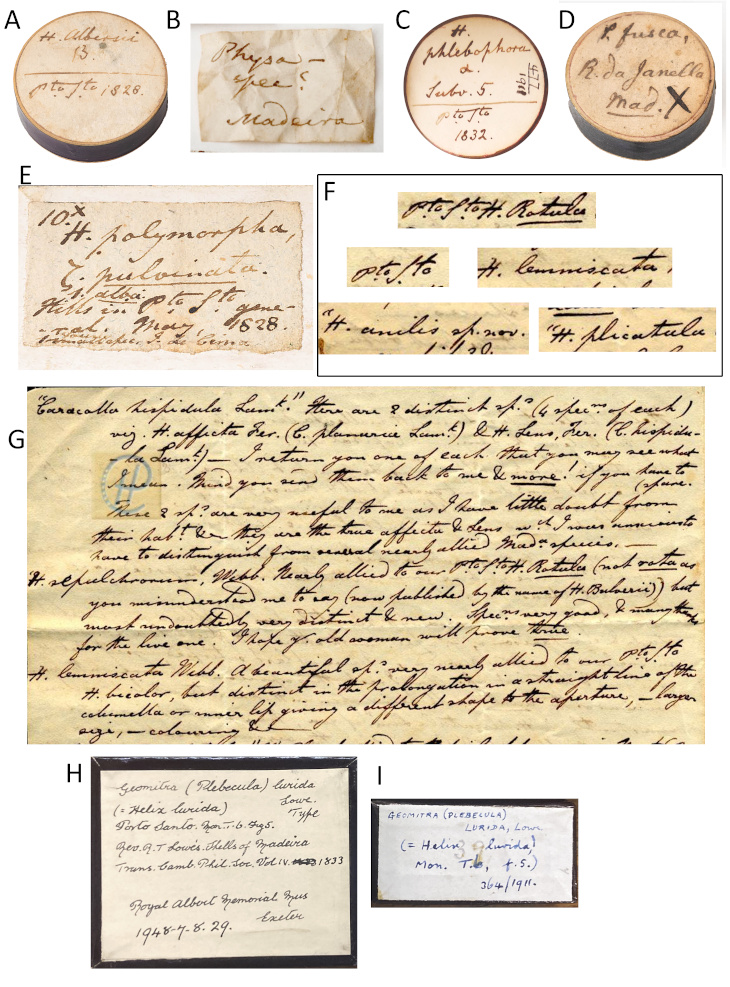 A
H. Albersii
B.
Pto Sto 1828.
B
Physa —
spec?
Madeira
C
H.
phlebophora
α.
Subv. 5.
Pto Sto
1832.
D
P. fusca,
R. da Janella
Mad. X
E
10.x
H. polymorpha,
T. pulvinata.
v. alba
Hills in Pto Sto gene-
ral. May, 1828.
F
Pto Sto H. Rotula
Pto Sto
H. lemniscata,
"H. anilis sp. nov.
"H. plicatula
G
"Caracolla hispidula Lamk." Here are 2 distinct sp.s (4 specns. of each)
viz. H. afficta Fer. (C. planaria Lamk.) & H. Lens, Fer. (C. hispidu-
la Lamk.) — I return you one of each that you may see what
I mean. Mind you send them back to me & more! if you have to
spare.
These 2 sp.s are very useful to me as I have little doubt from
their habt. &c they are the true afficta & Lens wch. I was anxious to
have to distinguish from several nearly allied Madn. species. —
H. sepulchrorum, Webb. Nearly allied to our Pto Sto H. Rotula (not rota as
you misunderstood me to say (now published by the name of H. Bulverii)) but
most undoubtedly very distinct & new. Specns. very good, & many thks.
for the live one. I hope yr. old woman will prove true.
H. lemniscata Webb. A beautiful sp.s very nearly allied to our Pto Sto
H. bicolor, but distinct in the prolongation in a straight line of the
columella or inner lip giving a different shape to the aperture, — larger
size, — colouring &c —
H
Geomitra (Plebecula) lurida
Lowe.
(= Helix lurida) Type
Porto Santo. Mon. T. 6. Fig 5.
Rev. R. T Lowe's. Shells of Madeira
Trans. Camb. Phil. Soc. Vol IV. 1833
Royal Albert Memorial Mus
Exeter
1948-7-8. 29.
I
GEOMITRA (PLEBECULA)
LURIDA, Lowe
(= Helix lurida,
Mon. T. 6, f. 5.)
364/1911.